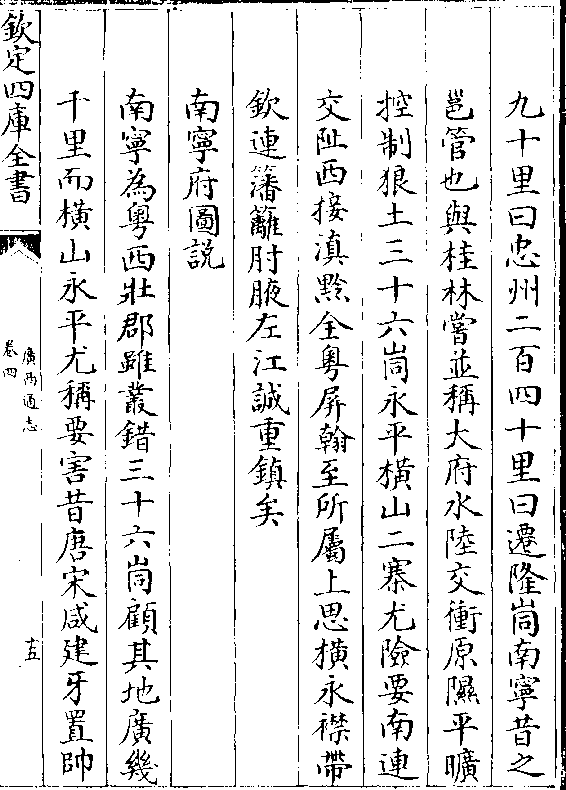 九十里曰忠州二百四十里曰遷隆峝南寧昔之
邕管也與桂林嘗並稱大府水陸交衝原隰平曠
控制狼土三十六峝永平橫山二寨尤險要南連
交阯西接滇黔全粤屏翰至所屬上思橫永襟帶
欽連籓籬肘腋左江誠重鎮矣
南寧府圖説
南寧為粤西壯郡雖叢錯三十六峝顧其地廣幾
千里而橫山永平尤稱要害昔唐宋咸建牙置帥
欽定四庫全書
廣西通志
卷四
十五